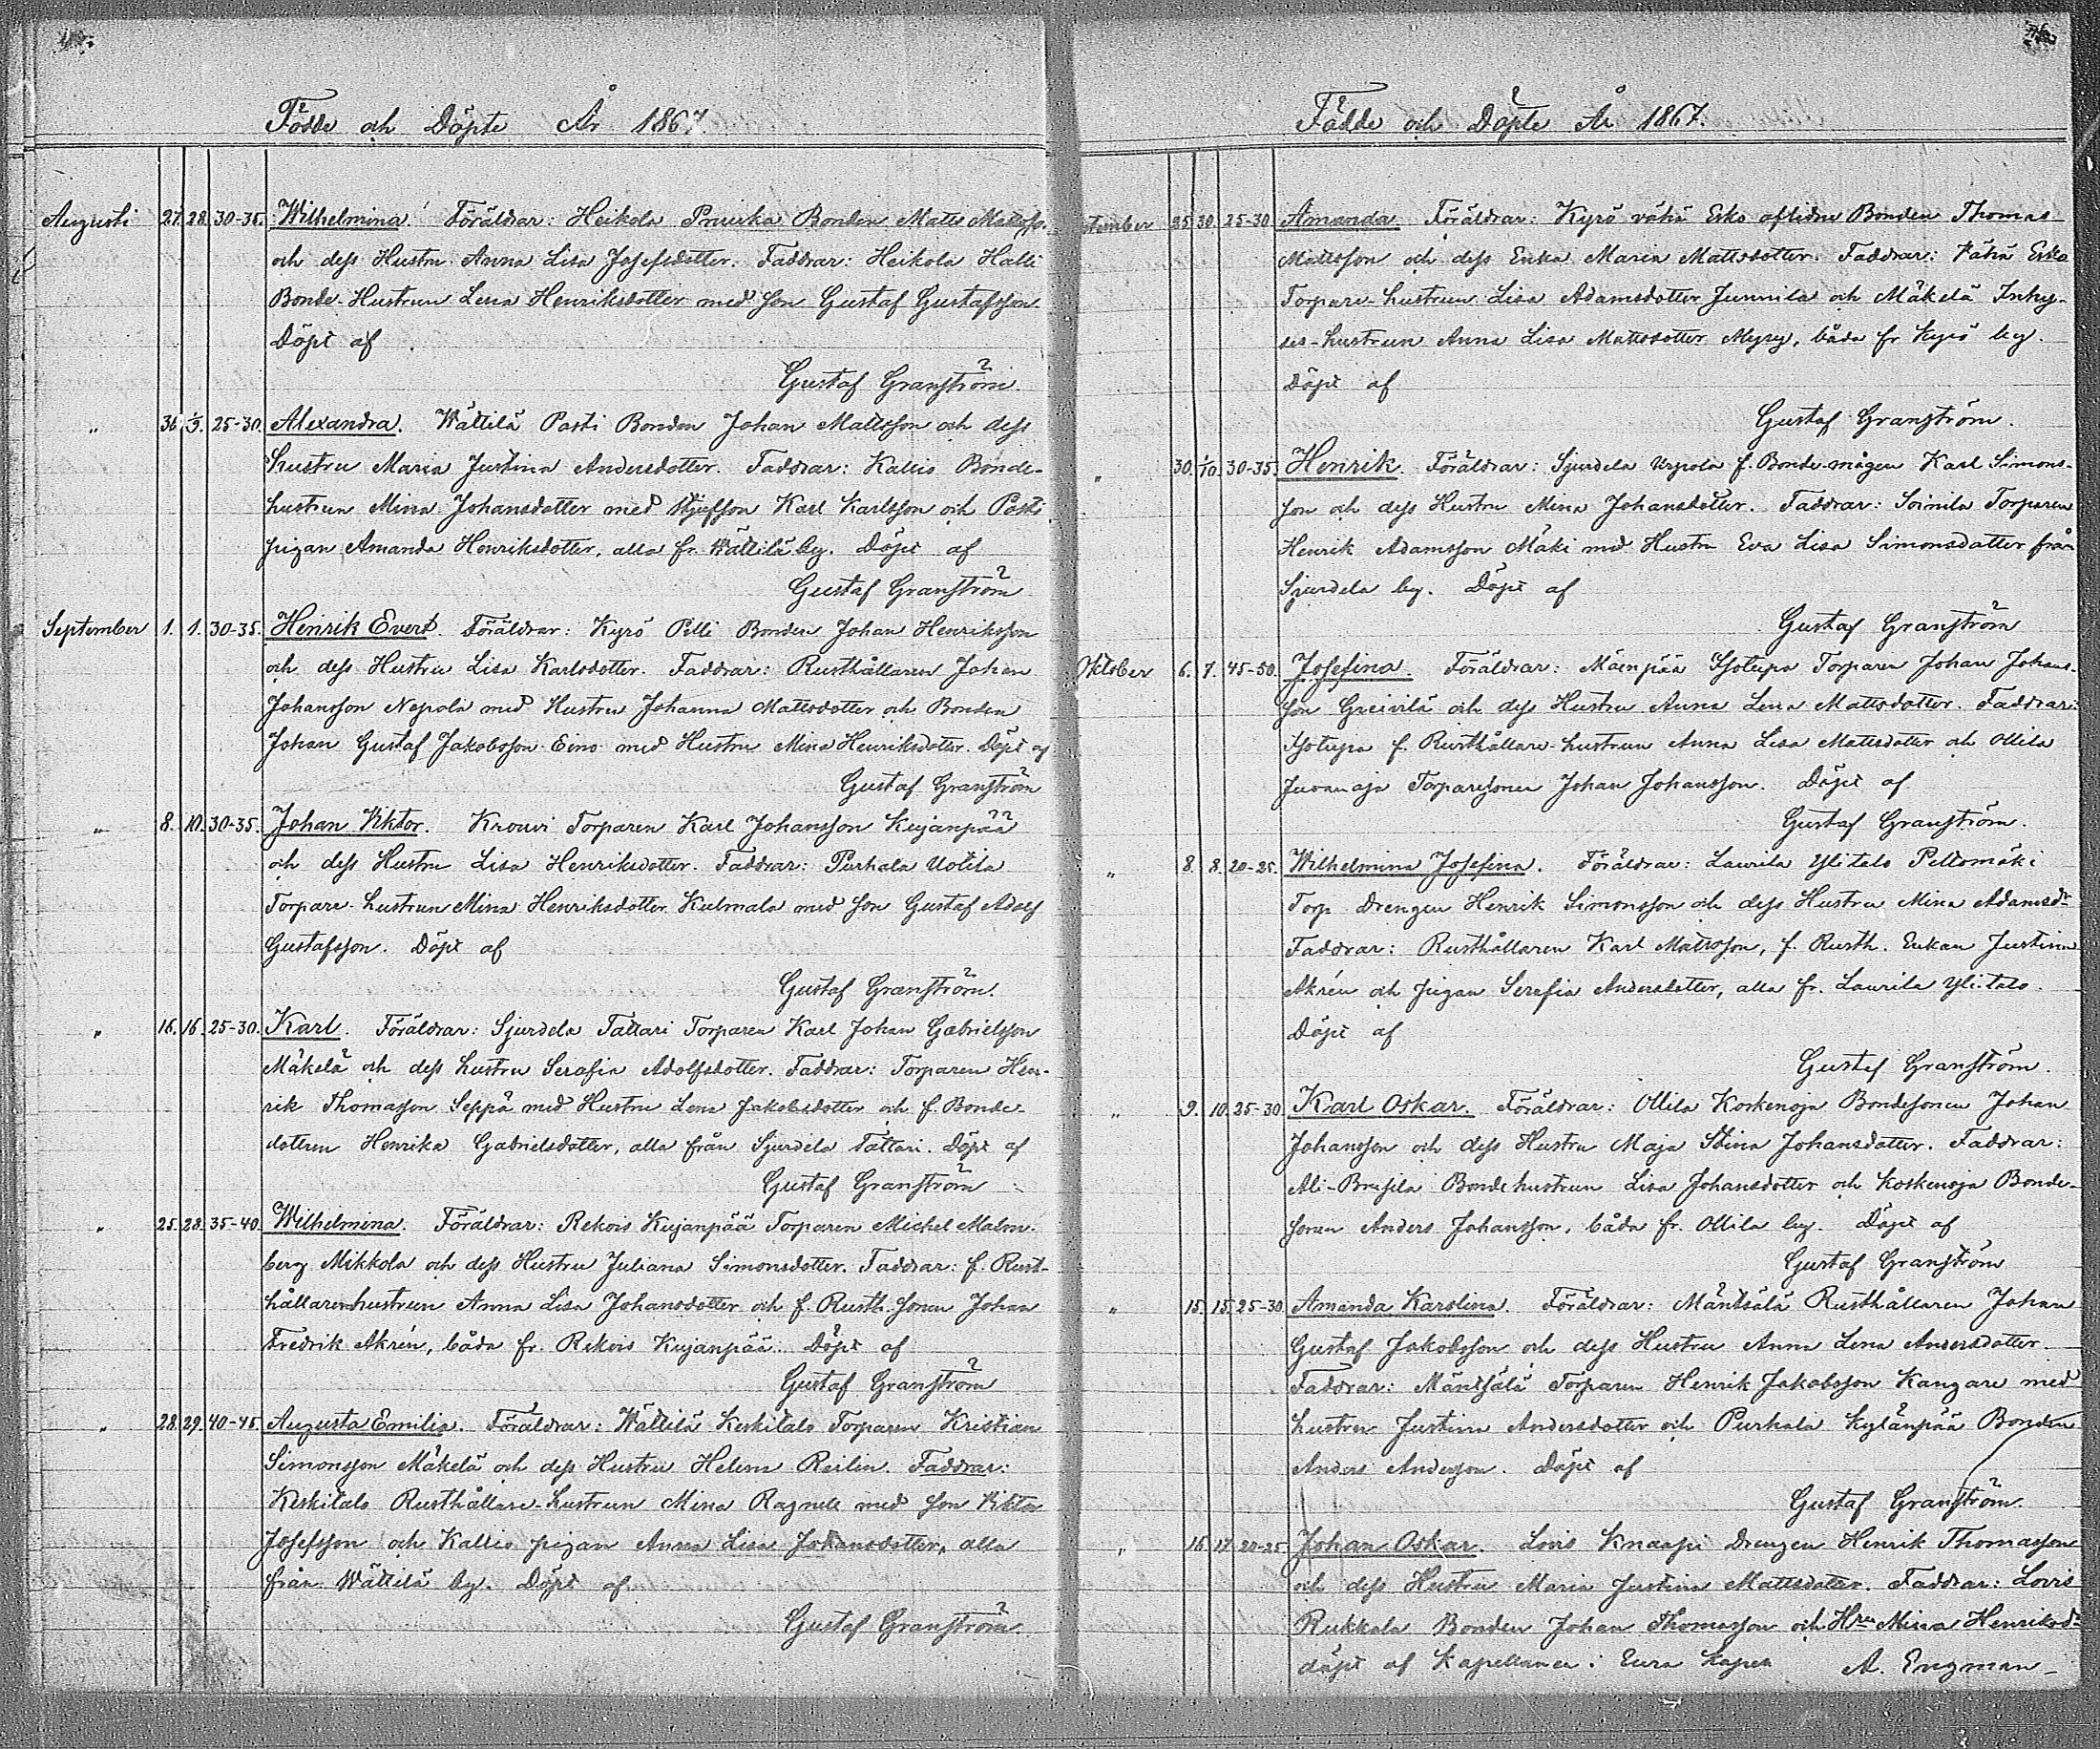 Födde och Döpte År 1867.
Augusti 27. 28. 30-35. Wilhelmina. Föräldrar: Heikola Pruuka Bonden Matts Mattsss.
och dess Hustru Anna Lisa Josefsdotter. Faddrar: Heikola Halli
Bonde-Hustrun Lena Henriksdotter med son Gustaf Gustafsson.
Döpt af
Gustaf Granström.
" 31. 1/9. 25-30. Alexandra. Wättilä Pasti Bonden Johan Mattsson och dess
hustru Maria Justina Andersdotter. Faddrar: Kallio Bonde-
hustrun Mina Johansdotter med styfson Karl Karlsson och Pasti
pigan Amanda Henriksdotter, alla fr. Wättilä by. Döpt af
Gustaf Granström
September 1. 1. 30-35. Henrik Evert. Föräldrar: Kyrö Pelli Bonden Johan Henriksson
och dess Hustru Lisa Karlsdotter. Faddrar: Rusthållaren Johan
Johansson Nepola med Hustru Johanna Mattsdotter och Bonden
Johan Gustaf Jakobsson Eino med Hustru Mina Henriksdotter. Döpt af
Gustaf Granström
" 8. 10. 30-35. Johan Viktor. Krouvi Torparen Karl Johansson Kujanpää
och dess Hustru Lisa Henriksdotter. Faddrar: Purhala Uotila
Torpare-hustrun Mina Henriksdotter Kulmala med son Gustaf Adolf
Gustafsson. Döpt af
Gustaf Granström.
" 16. 16. 25-30. Karl. Föräldrar: Sjurdela Tattari Torparen Karl Johan Gabrielsson
Mäkelä och dess hustru Serafia Adolfsdotter. Faddrar: Torparen Hen-
rik Thomasson Seppä med Hustru Lena Jakobsdotter och f. Bonde-
dottren Henrika Gabrielsdotter, alla från Sjurdela Tattari. Döpt af
Gustaf Granström
" 25. 28. 35-40. Wilhelmina. Föräldrar: Rekois Kujanpää Torparen Michel Malm-
berg Mikkola och dess Hustru Juliana Simonsdotter. Faddrar: f. Rust-
hållarenhustrun Anna Lisa Johansdotter och f. Rusth. sonen Johan
Fredrik Akrén, båda fr. Rekois Kujanpää. Döpt af
Gustaf Granström
" 28. 29. 40-45. Augusta Emilia. Föräldrar: Wättilä Keskitalo Torparen Kristian
Simonsson Mäkelä och dess Hustru Helena Reilin. Faddrar:
Keskitalo Rusthållare-hustrun Mina Ragnell med son Viktor
Josefsson och Kallio pigan Anna Lisa Johansdotter, alla
från Wättilä by. Döpt af
Gustaf Granström
Födde och Döpte År 1867.
tember 25. 30. 25-30 Amanda. Föräldrar: Kyrö vähä Esko aflidne Bonden Thomas
Mattsson och dess Enka Maria Mattsdotter. Faddrar: Vähä Esko
Torpare-hustrun Lisa Adamsdotter Junnila och Mäkelä Inhy-
ses-hustrun Anna Lisa Mattsdotter Myry, båda fr Kyrö by.
Döpt af
Gustaf Granström.
" 30. 1/10. 30-35. Henrik. Föräldrar: Sjurdela Urpola f. Bonde-mågen Karl Simons-
son och dess Hustru Mina Johansdotter. Faddrar: Soinila Torparen
Henrik Adamsson Mäki med Hustru Eva Lisa Simonsdotter från
Sjurdela by. Döpt af
Gustaf Granström
Oktober 6. 7. 45-50. Josefina. Föräldrar: Mäenpää Isotupa Torparen Johan Johans-
son och dess Hustru Anna Lena Mattsdotter. Faddrar:
Isotupa f. Rusthållare-hustrun Anna Lisa Mattsdotter och Ollila
Juvanoja Torparesonen Johan Johansson. Döpt af
Gustaf Granström.
" 8. 8. 20-25. Wilhelmina Josefina. Föräldrar: Laurila Ylitalo Peltomäki
Torp Drengen Henrik Simonsson och dess Hustru Mina Adamsdr
Faddrar: Rusthållaren Karl Mattsson, f. Rusth. Enkan Justina
Akrén och pigan Serafia Andersdotter, alla fr. Laurila Ylitalo.
Döpt af
Gustaf Granström.
" 9. 10. 25-30 Karl Oskar. Föräldrar: Ollila Koskenoja Bondesonen Johan
Johansson och dess Hustru Maja Stina Johansdotter. Faddrar:
Ali-Brusila Bondehustrun Lisa Johansdotter och Koskenoja Bonde-
sonen Anders Johansson, båda fr. Ollila by. Döpt af
Gustaf Granström
" 15. 15. 25-30 Amanda Karolina. Föräldrar: Mäntsälä Rusthållaren Johan
Gustaf Jakobsson och dess Hustru Anna Lena Andersdotter.
Faddrar: Mäntsälä Torparen Henrik Jakobsson Kangare med
hustru Justina Andersdotter och Purhala Kylänpää Bonden
Anders Andersson. Döpt af
Gustaf Granström.
" 16 17 20-25 Johan Oskar. Lovis Knaapi Drengen Henrik Thomasson
och dess Hustru Maria Justina Mattsdotter. Faddrar: Lovis
Rukkala Bonden Johan Thomasson och Hru Mina Henriksdr
döpt af Kapellanen i Eura Kapell A. Engman